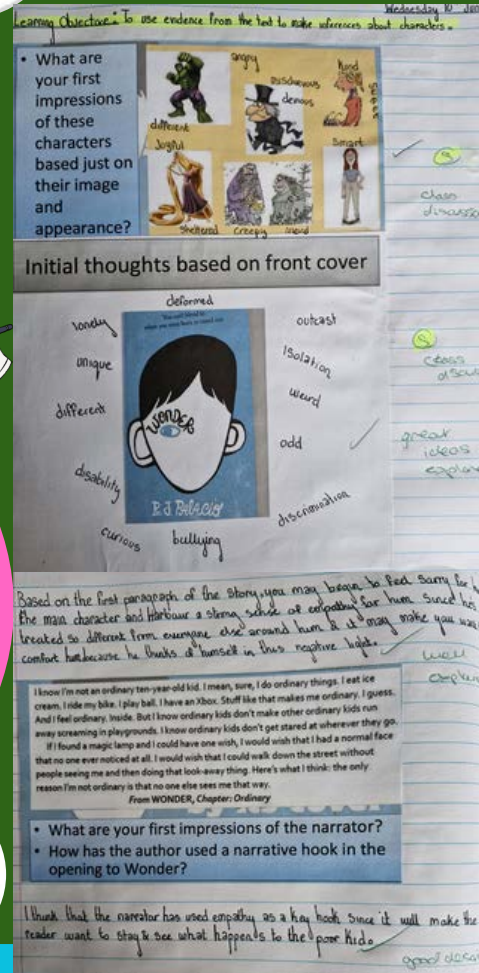 Wednesday 10
Learning Objective: To use evidence from the text to make inferences about characters.
• What are
your first
impressions
of these
characters
based just on
their image
and
appearance?
angry
different
mischievous
devious
kind
sweet
Joyful
sheltered
creepy
smart
class
Initial thoughts based on front cover
deformed
lonely
unique
different
disability
curious
bullying
outcast
Isolation
weird
odd
discrimination
You can't blend in
when you were born to stand out
WONDER
R J PALACIO
class
great
ideas
Based on the first paragraph of the story, you may begin to feel sorry for
the main character and harbour a strong sense of empathy for him since he's
treated so different form everyone else around him & it may make you
comfort him because he thinks of himself in this negative light.
well
I know I'm not an ordinary ten-year-old kid. I mean, sure, I do ordinary things. I eat ice
cream. I ride my bike. I play ball. I have an Xbox. Stuff like that makes me ordinary. I guess.
And I feel ordinary. Inside. But I know ordinary kids don't make other ordinary kids run
away screaming in playgrounds. I know ordinary kids don't get stared at wherever they go.
If I found a magic lamp and I could have one wish, I would wish that I had a normal face
that no one ever noticed at all. I would wish that I could walk down the street without
people seeing me and then doing that look-away thing. Here's what I think: the only
reason I'm not ordinary is that no one else sees me that way.
From WONDER, Chapter: Ordinary
• What are your first impressions of the narrator?
• How has the author used a narrative hook in the
opening to Wonder?
I think that the narrator has used empathy as a key hook since it will make the
reader want to stay & see what happens to the poor kid.
good